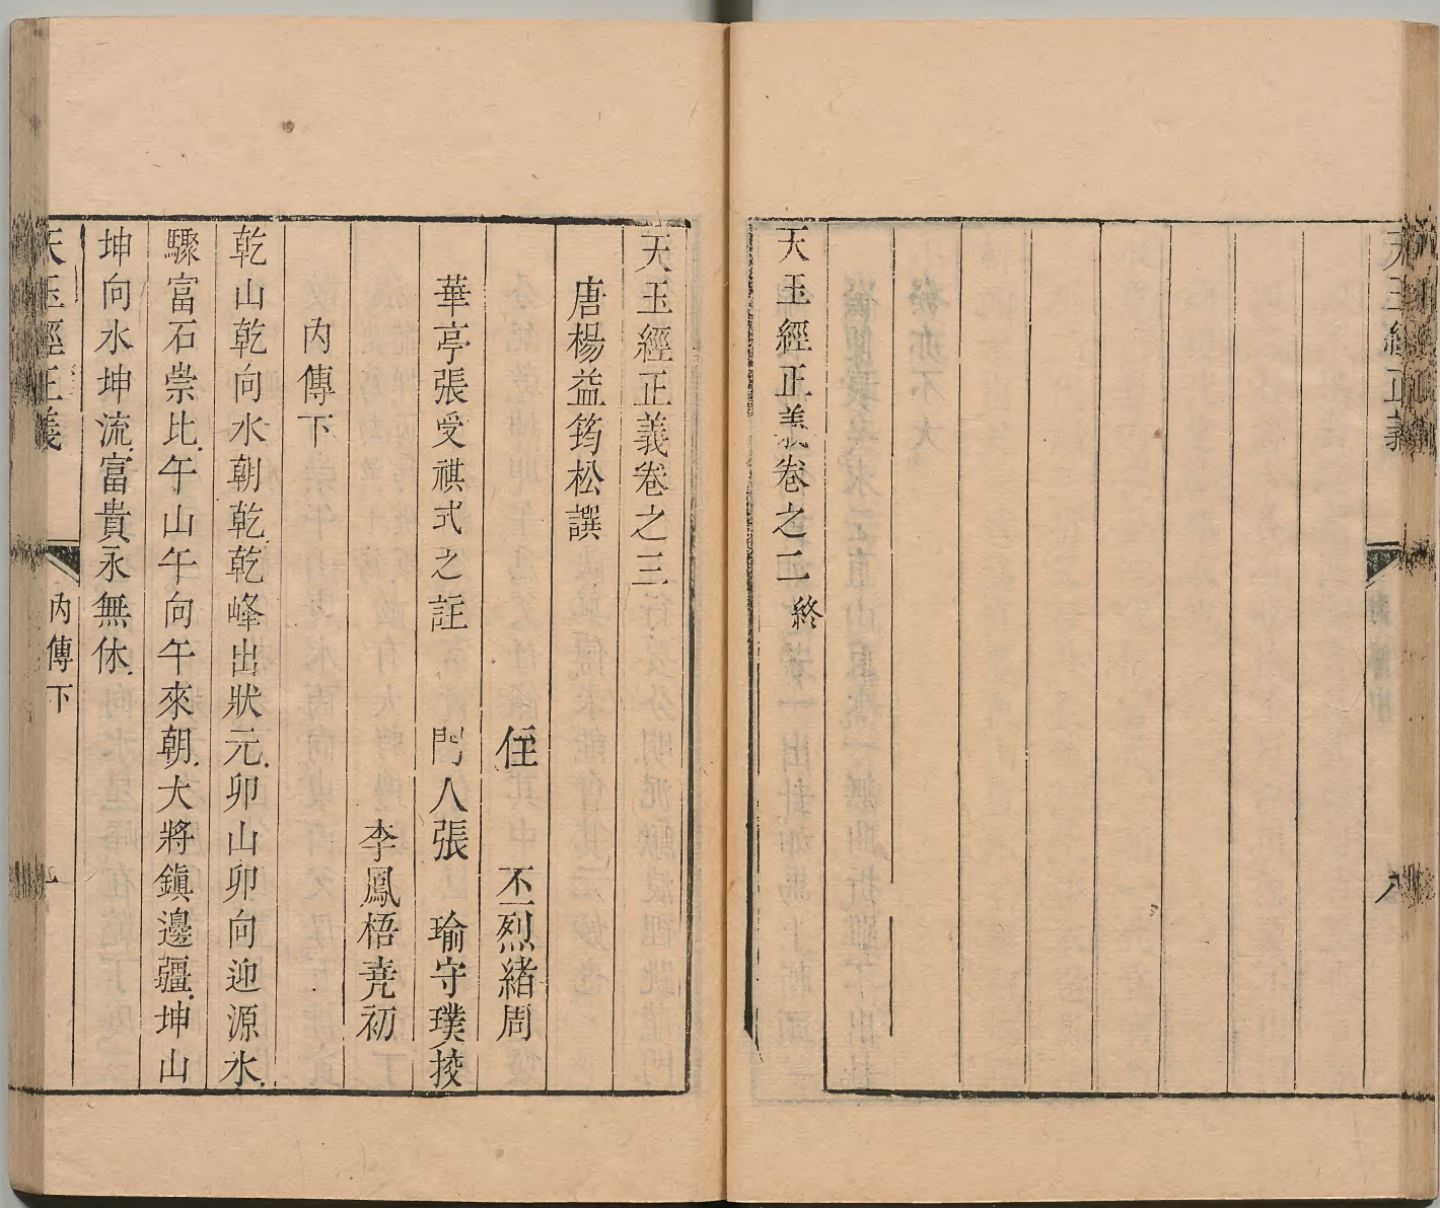 天玉經正義
八
天玉經正義卷之二終
天玉經正義卷之三
唐楊益筠松譔
任 丕烈緒周
華亭張受祺式之註 門人張 瑜守璞挍
李鳳梧堯初
內傳下
乾山乾向水朝乾乾峰出狀元卯山卯向迎源水
驟富石崇比午山午向午來朝大將鎮邊疆坤山
坤向水坤流富貴永無休
天玉經正義 內傳下